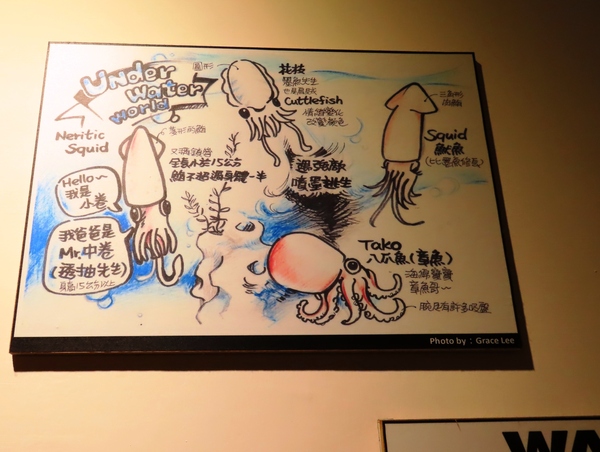 Under
Water
World
Neritic
Squid
Hello~
我是
小卷
我爸爸是
Mr.中卷
(透抽先生)
身長15公分以上
菱形的鰭
全長小於15公分
鰭不超過身體一半
圓形
花枝
墨魚先生
Cuttlefish
情緒變化
改變顏色
遇強敵
噴墨逃生
三角形
Squid
魷魚
Tako
八爪魚(章魚)
海海寶寶
章魚哥~
腕足有許多吸盤
Photo by : Grace Lee
WA